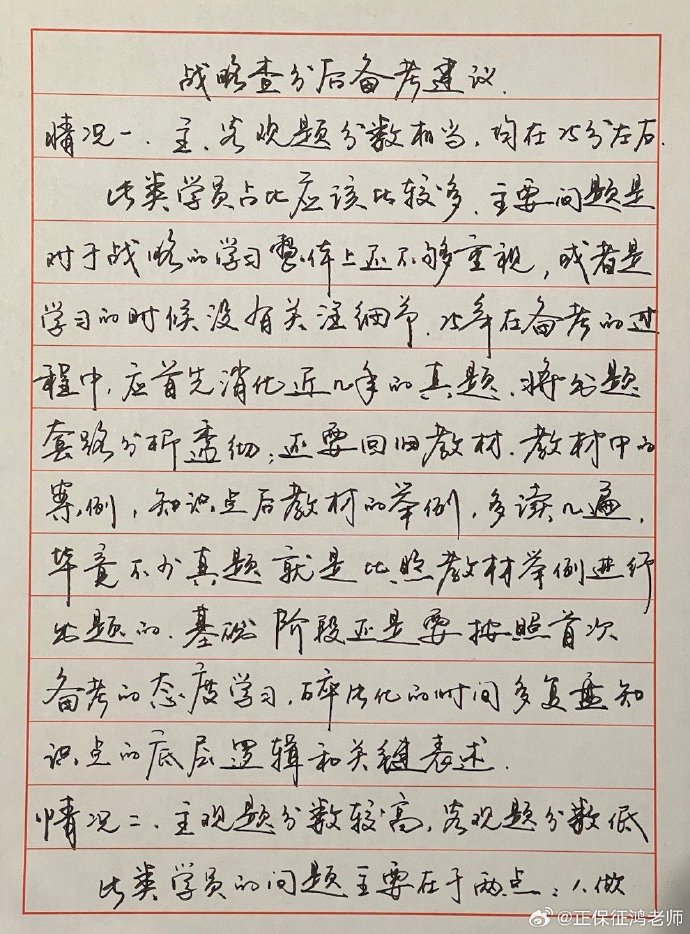 战略查分后备考建议.
情况一、主、客观题分数相当,均在25分左右.
此类学员占比应该比较多、主要问题是
对于战略的学习整体上还不够重视,或者是
学习的时候没有关注细节.25年在备考的过
程中,应首先消化近几年的真题、将出题
套路分析透彻;还要回归教材、教材中的
案例,知识点后教材的举例,多读几遍,
毕竟不少真题就是比照教材举例进行
出题的、基础阶段还是要按照首次
备考的态度学习,碎片化的时间多复盘知
识点的底层逻辑和关键表述.
情况二、主观题分数较高,客观题分数低
此类学员的问题主要在于两点:1、做
@正保征鸿老师